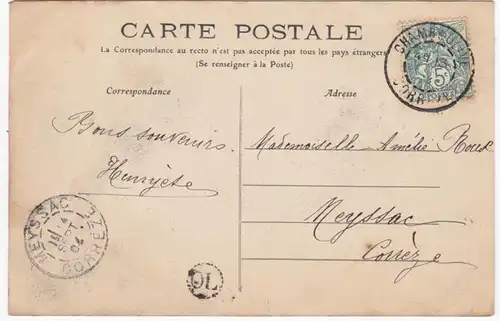 CARTE POSTALE
La Correspondance au recto n'est pas acceptée par tous les pays étrangers
(Se renseigner à la Poste)
Correspondance
Adresse
Bons souvenirs
Henryète
Mademoiselle Amélie
Meyssac
Corrèze
MEYSSAC
CORRÈZE
OL
5c